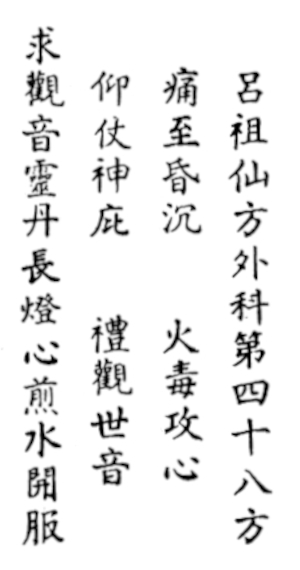 呂祖仙方外科第四十八方
痛至昏沉　火毒攻心
仰仗神庇　禮觀世音
求觀音靈丹長燈心煎水開服